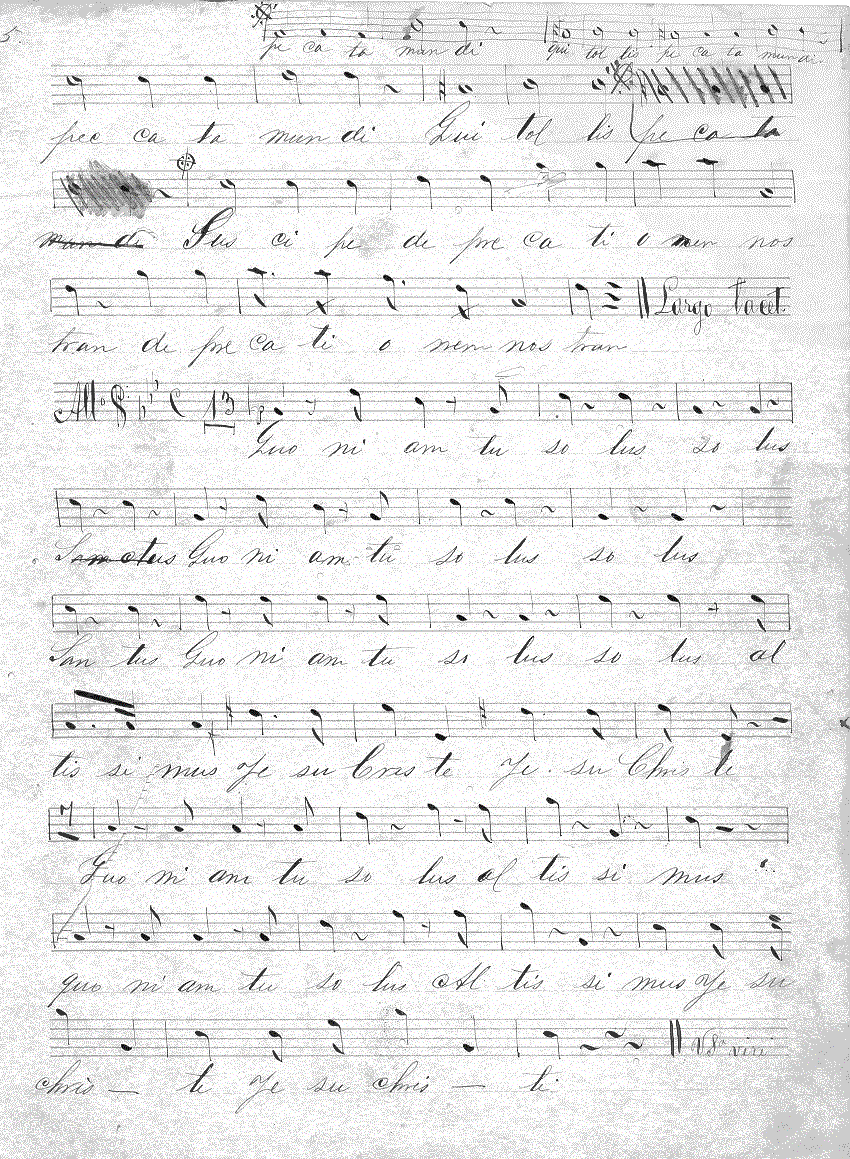 5
pe ca ta mun di qui tol lis pe ca ta mundi
pec ca ta mun di Qui tol lis pe ca ta
mun di Sus ci pe de pre ca ti o nem nos
tran de pre ca ti o nem nos tran Largo Tacet.
All° C 13
Quo ni am tu so lus so lus
Sanctus Quo ni am tu so lus so lus
San tus Quo ni am tu so lus so lus al
tis si mus Je su Cris te Je su Chris te
7
Quo ni am tu so lus al tis si mus
quo ni am tu so lus Al tis si mus Je su
chris — te Je su chris — ti